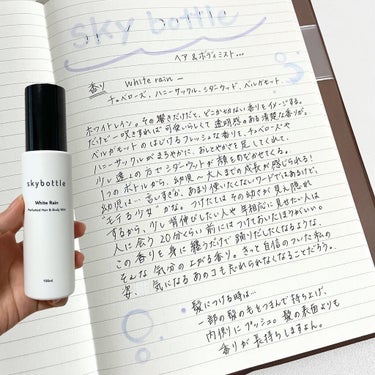 sky bottle
ヘア & ボディミスト...
香り white rain ー
チュベローズ、ハニーサックル、シダーウッド、ベルガモット.
ホワイトレイン。その響きだけだと、どこか切ない香りをイメージする。
だけど一吹きすれば可愛いらしくて透明感のある清楚な香りが。
ベルガモットのはじけるフレッシュな香りを、チュベローズや
ハニーサックルがまろやかに、おとやかさを足してくれて、
少し遠くの方でシダーウッドが顔をのぞかせてくる。
1つのボトルから、幼児〜大人までの成長が感じられる!
幼児は…言いすぎか。あまり使いたくないワードではあるけど、
モテる少女"かな。つけたてはその幼さが見え隠れ
するから、少し背伸びしたい人や年相応に見せたい人は
人に会う20分くらい前にはつけておいたほうがいい。
この香りを身に纏うだけで踊りだしたくなるような、
そんな気分の上がる香り。きって自信のついた私の
姿、気になるあのコも忘れられなくなることだろう。
髪につける時は…
一部の髪の毛をつまんで持ち上げ、
内側にプッシュ。髪の表面よりも
香りが長持ちしますよん。
skybottle
White Rain
Perfumed Hair & Body Mist
100ml